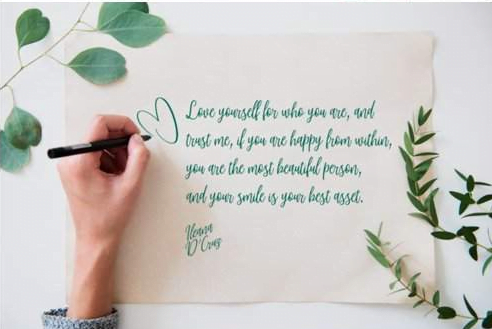 Love yourself for who you are, and
trust me, if you are happy from within,
you are the most beautiful person,
and your smile is your best asset.
Ileana
D'Cruz